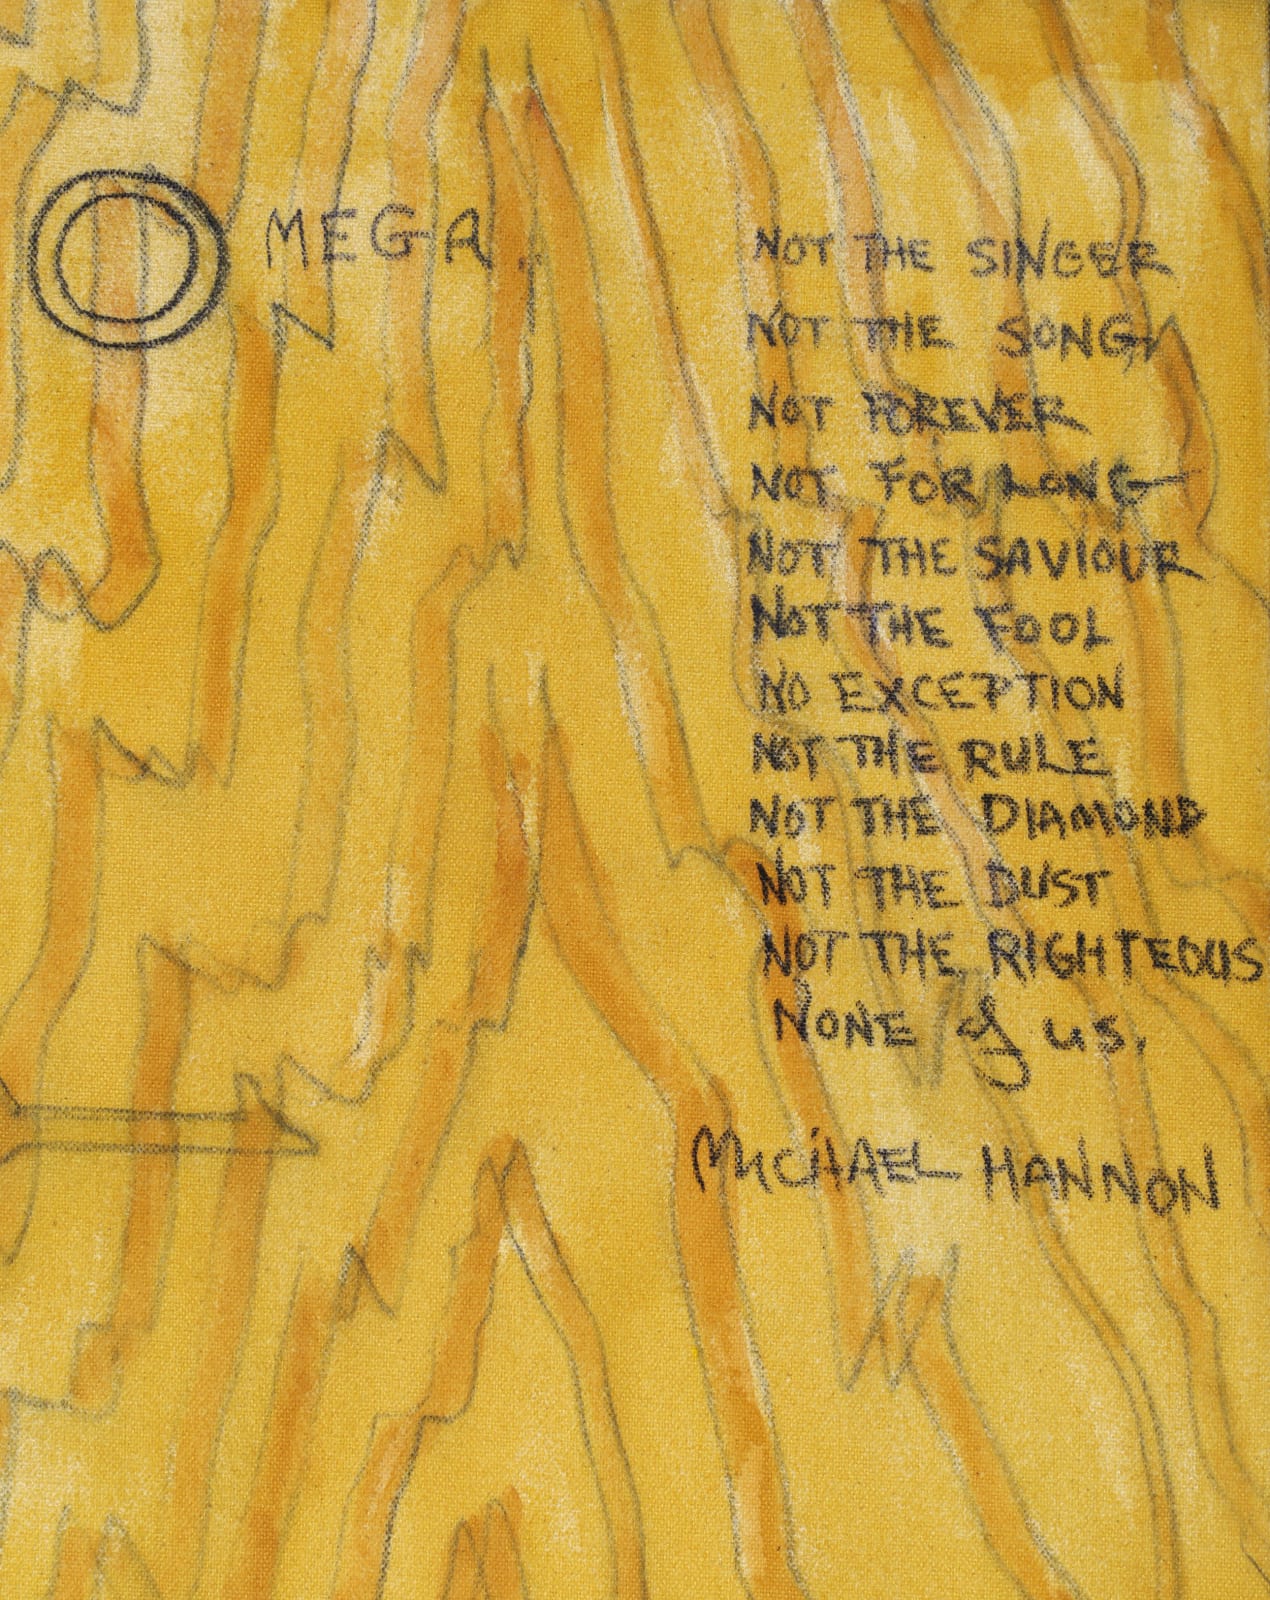 OMEGA.
NOT THE SINGER
NOT THE SONG
NOT FOREVER
NOT FOR LONG
NOT THE SAVIOUR
NOT THE FOOL
NO EXCEPTION
NOT THE RULE
NOT THE DIAMOND
NOT THE DUST
NOT THE RIGHTEOUS
NONE of us.
MICHAEL HANNON